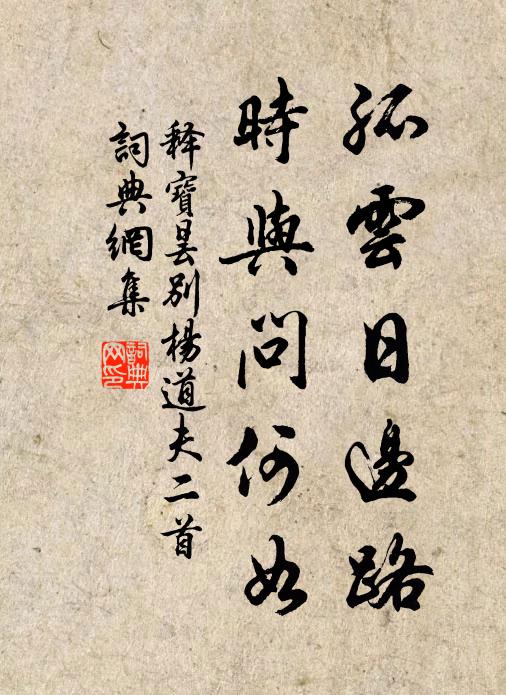 孤雲日邊路
時與問何如
釋寶曇別楊道夫二首
詞典網集
詞典
网印